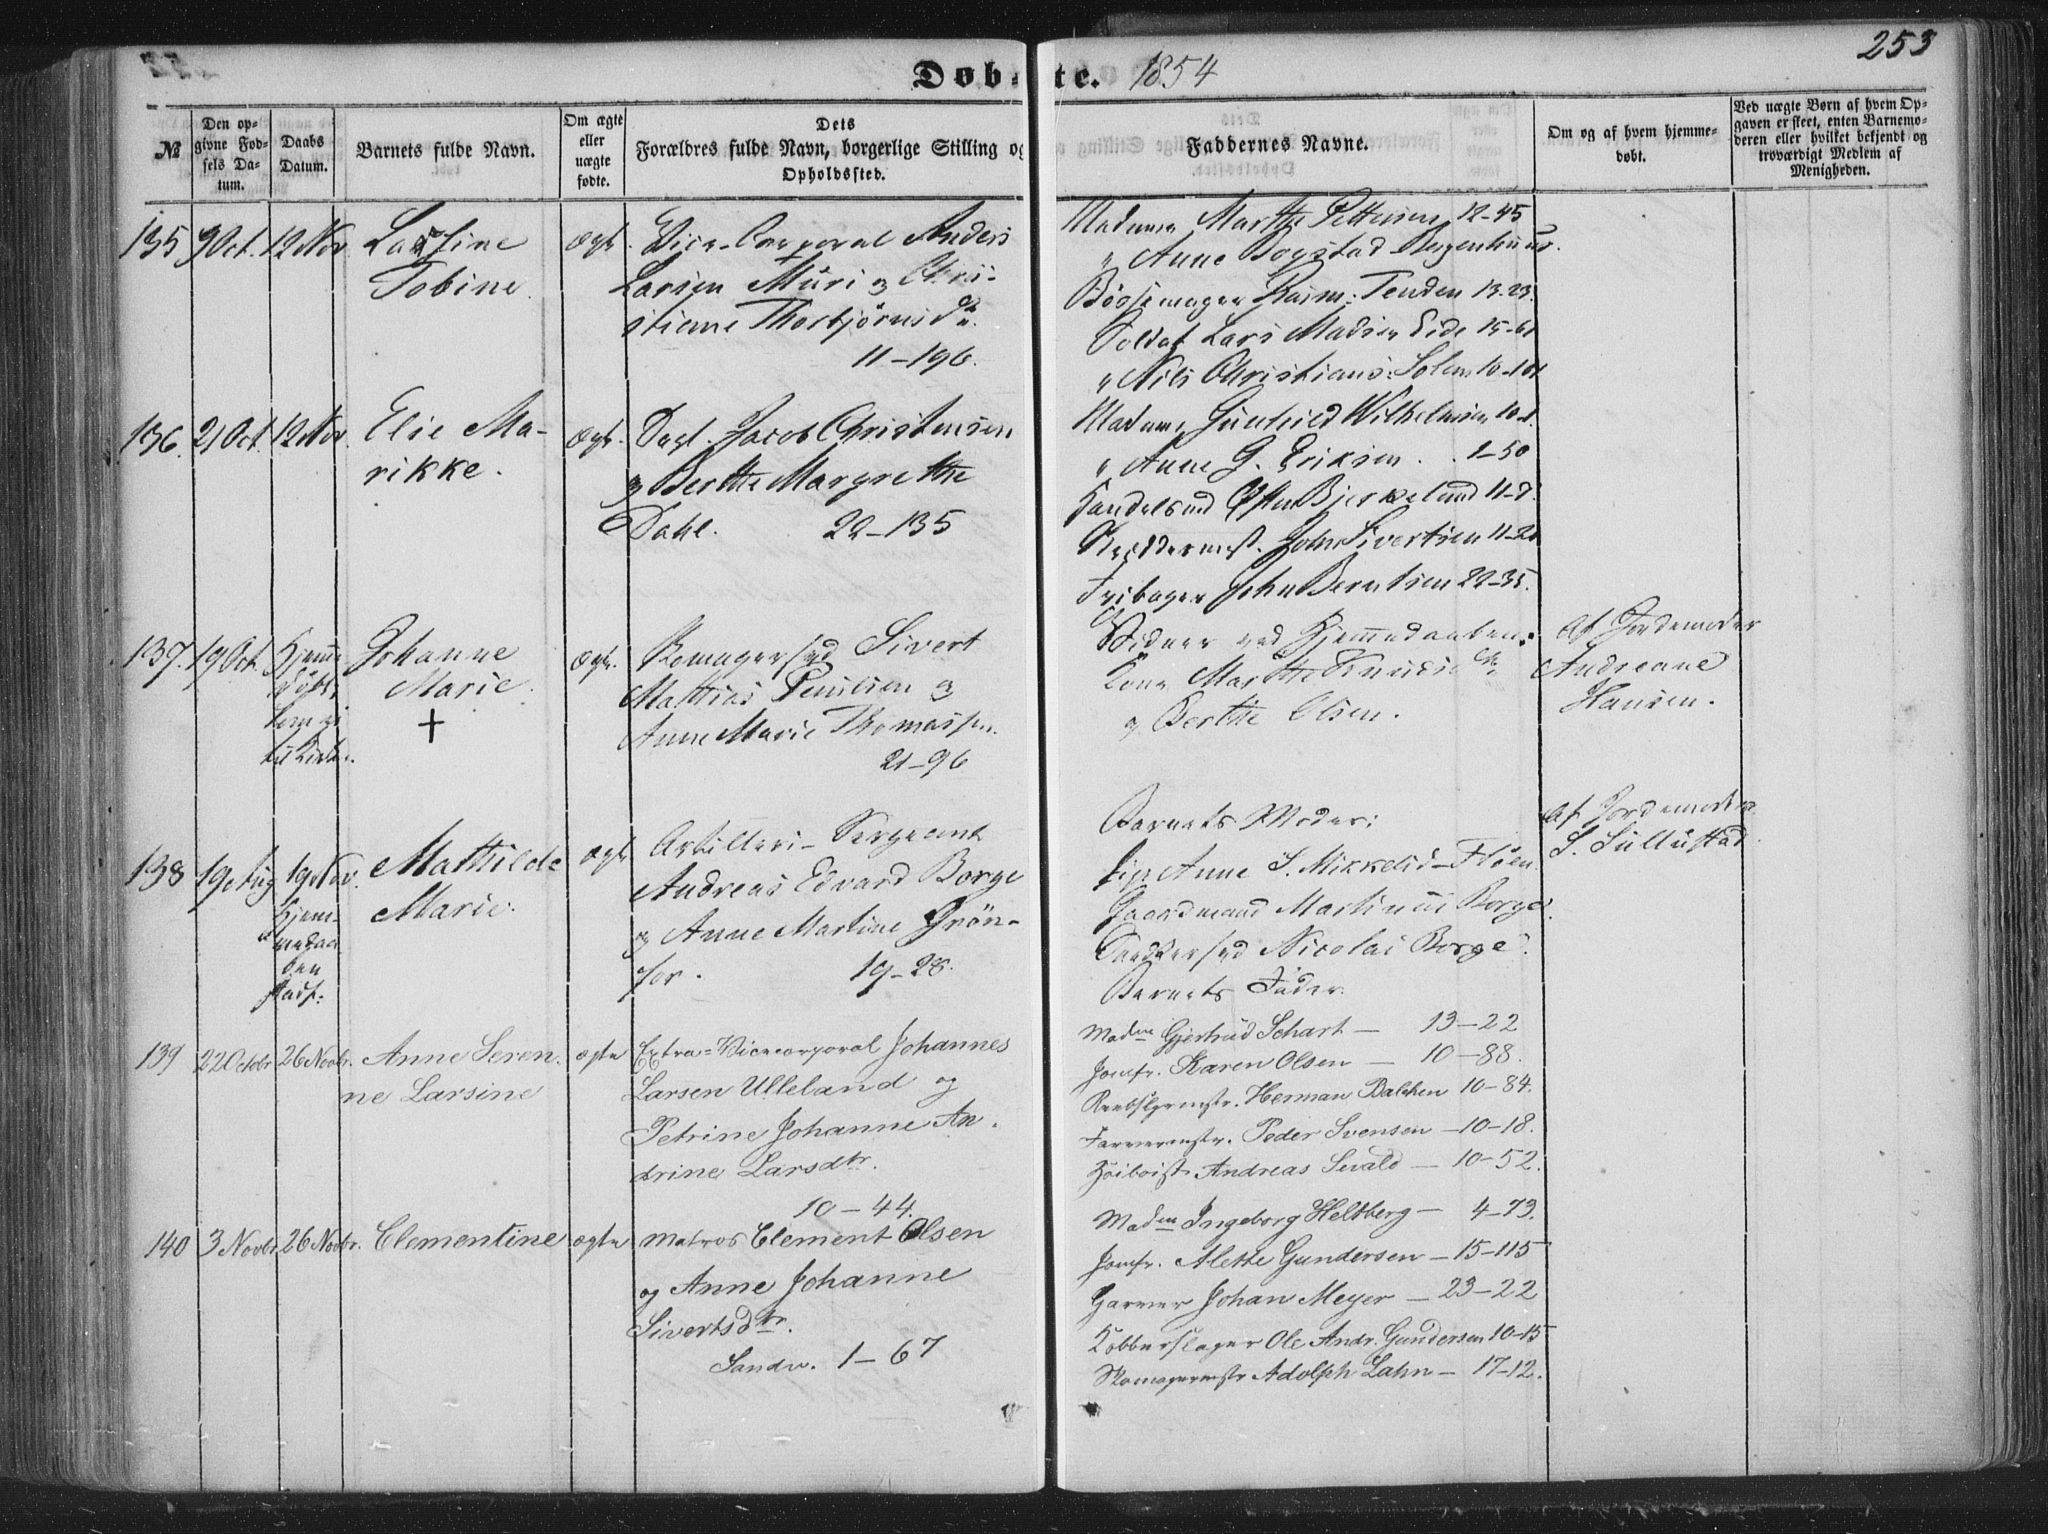 253
Døbte. 1854
№
Den opgivne Fødsels Datum.
Daabs Datum.
Barnets fulde Navn.
Om ægte eller uægte fødte.
Dets Forældres fulde Navn, borgerlige Stilling og Opholdssted.
Faddernes Navne.
Om og af hvem hjemmedøbt.
Ved uægte Børn af hvem Opgaven er skeet, enten Barnemoderen eller hvilket bekjendt og troværdigt Medlem af Menigheden.
135 9 Oct. 12 Nov
Tobine
ægte
Vice-Corporal Anders
Larsen Muri og Chri-
stiane Thorbjørnsdr.
11-196.
Madame Marthe Pettersen 12-45
" Anne Bogstad
Bøssemager Rasm: Tenden 13-23.
Soldat Lars Madsen Eide 15-61
" Nils Christians: Solem 10-101
136. 21 Oct. 12 Nov.
Elie Ma-
rikke.
ægte.
Dagl. Jacob Christensen
og Berthe Margrethe
Dahl. 22-135
Madame Gunhild Wilhelmsen
" Anne G. Eriksen . . 1-50
Bjerkelund 11-7
Skreddermst. John Sivertsen 11-21
John Berntsen 22-35.
137. 19 Oct. Hjemme
døbt,
til Kirken.
Johanne
Marie.
†
ægte.
Sivert
Mathias Poulsen og
Anne Marie Thomassen.
21-96
Vidner ved Hjemmedaaben:
Kone Marthe
og Berthe Olsen.
Af Jordemoder
Andreane
Hansen.
138 19 Aug 19 Nov.
Hjem-
medaa
ben
stadf:
Mathilde
Marie.
ægte
Artilleri-Sergeant
Andreas Edvard Borge
og Anne Martine Grøn-
for. 19-28.
Barnets Moder;
Pige Anne S. Mikkelsd-Fløen
Gaardmand Martinus Borge.
Nicolai Borge.
Barnets Fader.
Af Jordemoder
S. Sullustad
139 22 Octobr 26 Novbr.
Anne Seren-
ne Larsine
ægte
Extra-Vicecorporal Johannes
Larsen Ulleland og
Petrine Johanne An-
drine Larsdtr.
10-44.
Madm Gjertrud Schart — 13-22
Jomfr. Karen Olsen — 10-88.
Reebslgermstr. Herman Balchen 10-84.
Farvermstr. Peder Svensen — 10-18.
Hoiboist Andreas Sevald — 10-52.
140 3 Novbr 26 Novbr.
Clementine
ægte
Matros Clement Olsen
og Anne Johanne
Sivertsdtr.
Sandv. 1-67
Madm Ingeborg Heltberg — 4-73.
Jomfr. Alette Gundersen — 15-115
Garver Johan Meyer — 23-22
Kobberslager Ole Andr. Gundersen 10-15
Skomagermstr Adolph Lahn — 17-12.